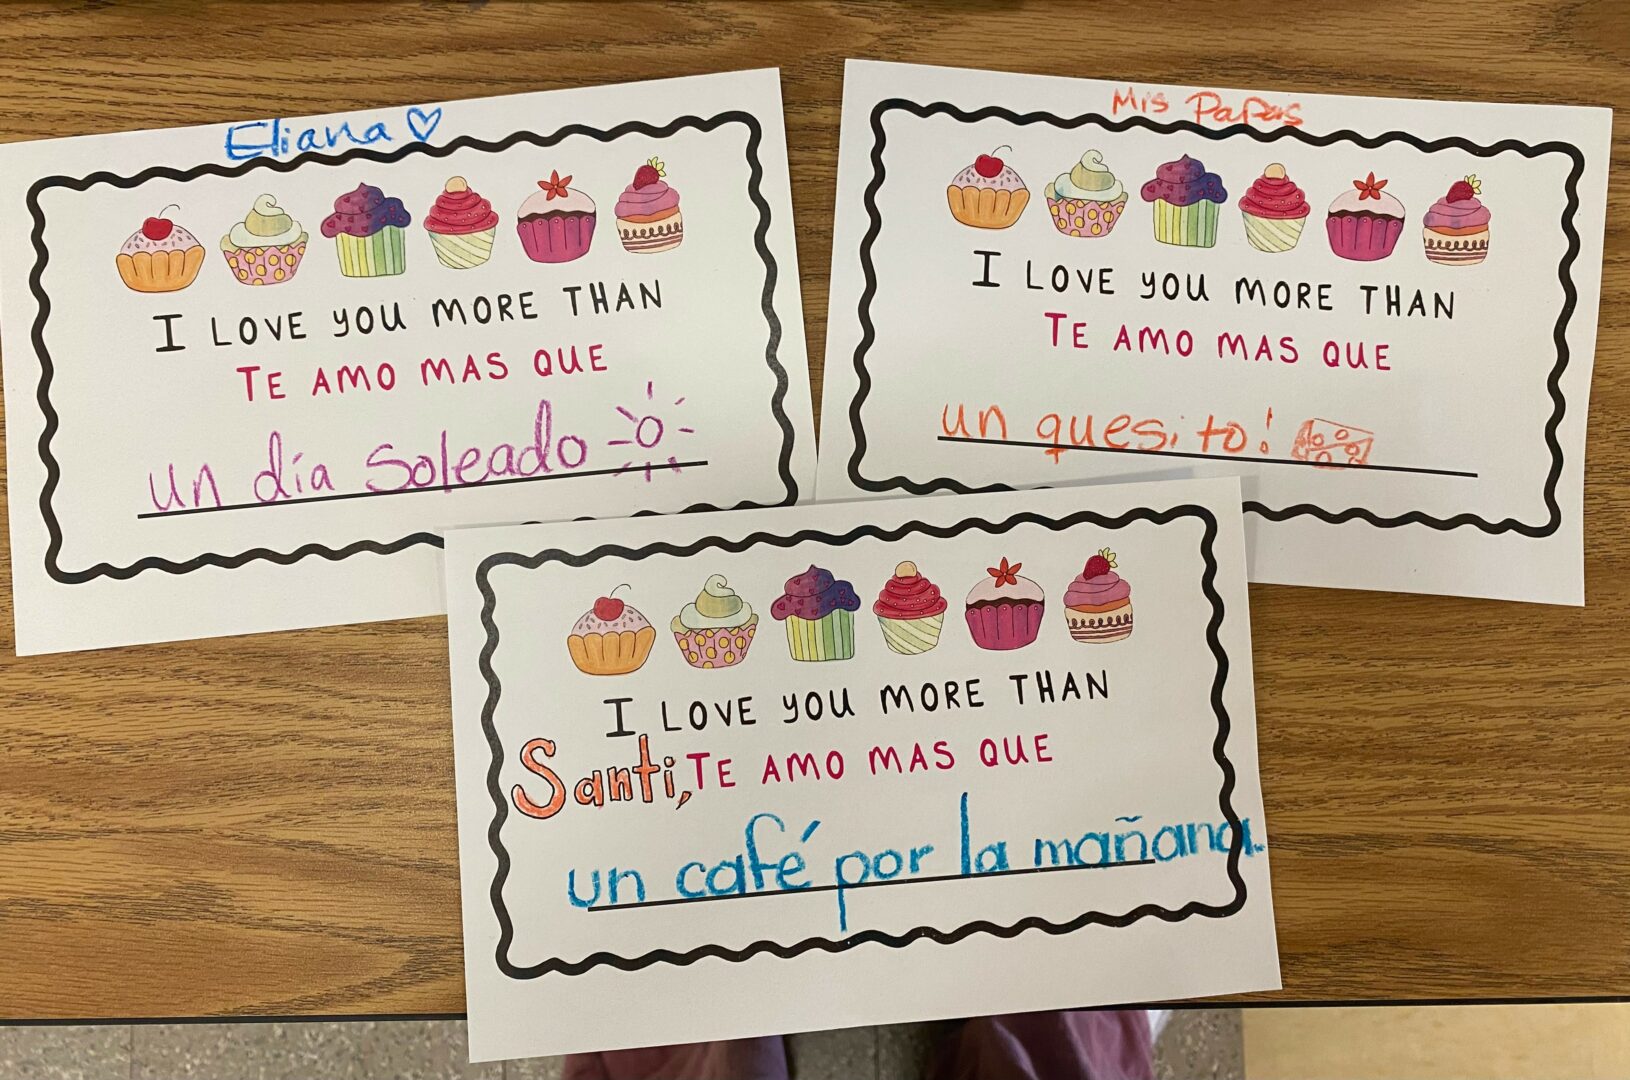 Eliana
I LOVE YOU MORE THAN
TE AMO MAS QUE
un día soleado
Mis Papas
I LOVE YOU MORE THAN
TE AMO MAS QUE
un quesito!
I LOVE YOU MORE THAN
Santi, TE AMO MAS QUE
un café por la mañana.